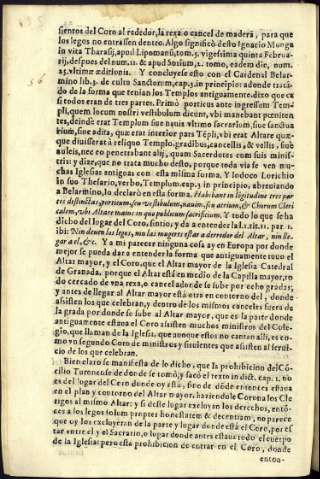 sientos del Coro al rededor, la rexa o cancel de madera, para que
los legos no entrassen dentro. Algo significò desto Ignacio Monge
in vita Tharasij, apud Lipomanum, tom. 5. vigesima quinta Februa-
rij, despues del num. 11. & apud Sorium, 1. tomo, eadem die, num.
25. vltimæ editionis. Y concluyese esto con el Cardenal Belar-
mino lib. 3. de cultu Sanctorum, cap. 3. in principio: adonde tratã-
do de la forma que tenian los Templos antiguamente dizo que ca
si todos eran de tres partes. Primò porticus ante ingressum Tem-
pli, quem locum nostri vestibulum dicunt, vbi manebant pœniten
tes, deinde erat Templum siue nauis vltimo sacrarium, siue sanctua
rium, siue adita, quæ erat interior pars Tẽpli, vbi erat Altare quæ-
que diuisserat à reliquo Templo, gradibus, cancellis, & vellis, sub
auleis, nec eo penetrabant alij, quam Sacerdotes cum suis minis-
tris: y dize, que no trata mucho desto, porque toda via se ven mu-
chas Iglesias antiguas con esta misma forma. Y Iodoco Lorichio
in suo Thesario, verbo, Templum, cap. 1. in principio, abreuiando
a Belarmino, lo declarò en esta forma. Habebant in longitudine tres par
tes distinctas, porticum, seu vestibulum, nauim, siue atrium, & Chorum Cleri
calem, vbi Altare manet in quo publicum sacrificium. Y todo lo que se ha
dicho del lugar del Coro, sintio, y da a entender la l. 1. tit. 11. par. 1.
ibi: Non deuen los legos, nin las mugeres estar a derredor del Altar, nin lle-
gar a el, &c. Y a mi parecer ninguna cosa ay en Europa por donde
mejor se pueda dar a entender la forma que antiguamente tuuo el
Altar mayor, y el Coro, que el Altar mayor de la Iglesia Catedral
de Granada, porque el Altar està en medio de la Capilla mayor, ro
do cercado de vna rexa, o cancel adonde se sube por ocho gradas;
y antes de llegar al Altar mayor està otro en contorno del, donde
assisten los que celebran, y dentro de los mismos canceles fuera de
la grada por donde se sube al Altar mayor, que es la parte donde
antiguamente estaua el Coro assisten muchos ministros del Cole-
gio, que llaman de la Iglesia, que aunque estos no cantan alli, es co-
mo vn segundo Coro de ministros y siruientes que assisten al serui-
cio de los que celebran.
Bien claro se manifiesta de lo dicho, que la prohibicion del Cõ-
cilio Turonense de donde se tomò, y sacò el texto in dict. cap. 1. no
es del lugar del Coro donde oy està, sino de dõde entonces estaua
en el plan y contorno del Altar mayor, haziendole Corona los Cle
rigos al mismo Altar: y si deste lugar excluyan los derechos, entõ-
ces a los legos solum propter honestatem & decentiam, no parece
que oy los excluyeran de la parte y lugar donde està el Coro, por es
tar entre el y el Sacrario, o lugar donde antes estaua todo el cuerpo
de la Iglesia: pero esta prohibicion de entrar en el Coro, donde
enton-